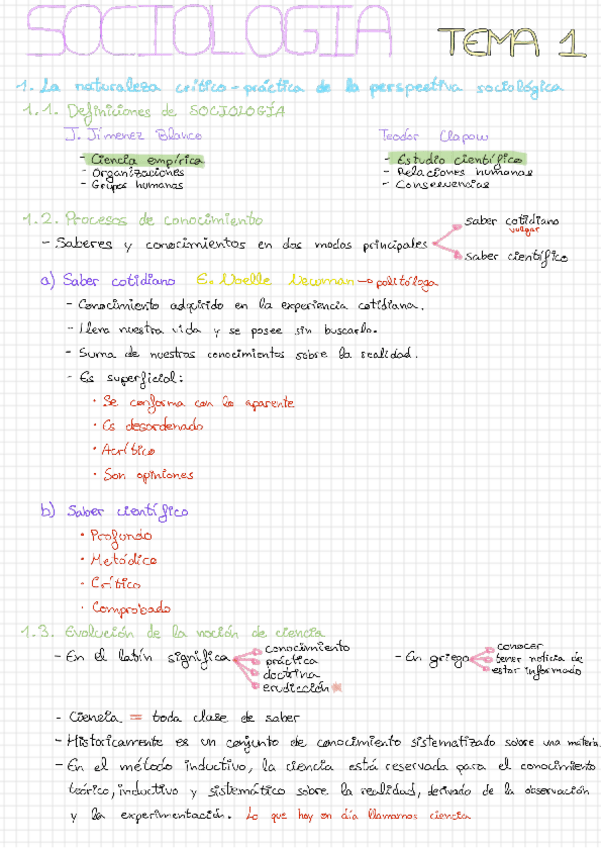 SOCIOLOGIA
TEMA 1
1. La naturaleza crítico-práctica de la perspectiva sociológica
1.1. Definiciones de SOCIOLOGÍA
J. Jimenez Blanco
- Ciencia empírica
- Organizaciones
- Grupos humanos
Teodor Clapow
- Estudio científico
- Relaciones humanas
- Consecuencias
1.2. Procesos de conocimiento
- Saberes y conocimientos en dos modos principales
saber cotidiano
vulgar
saber científico
a) Saber cotidiano E. Noelle Newman → politóloga
- Conocimiento adquirido en la experiencia cotidiana.
- Llena nuestra vida y se posee sin buscarlo.
- Suma de nuestros conocimientos sobre la realidad.
- Es superficial:
· Se conforma con lo aparente
· Es desordenado
· Acrítico
· Son opiniones
b) Saber científico
· Profundo
· Metódico
· Crítico
· Comprobado
1.3. Evolución de la noción de ciencia
- En el latín significa
conocimiento
práctica
doctrina
erudicción
- En griego
conocer
tener noticia de
estar informado
- Ciencia = toda clase de saber
- Historicamente es un conjunto de conocimiento sistematizado sobre una materia.
- En el método inductivo, la ciencia está reservada para el conocimiento
teórico, inductivo y sistemático sobre la realidad, derivado de la observación
y la experimentación. Lo que hoy en día llamamos ciencia